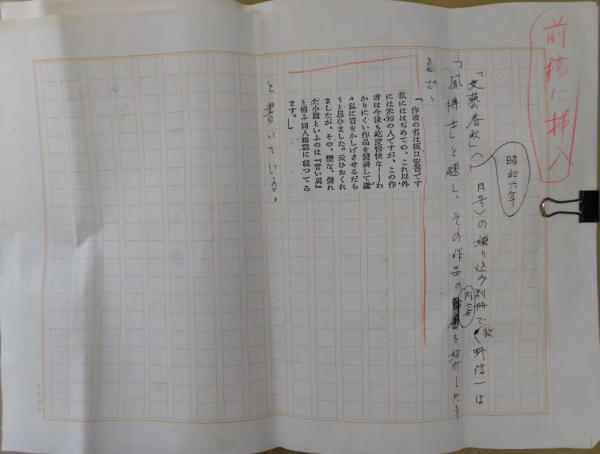 前稿に挿入
昭和六年
「文藝春秋」（ 月号）の綴り込み別冊で牧野信一は
「風博士」と題し、その作品の内容を紹介したう
えで、
「作者の名は坂口安吾です
私にははじめての、これ以外
には未知の人ですが、この作
者は今後も
かりにくい作品を發表して
々私に首をかしげさせるだら
うと思ひました。云ひおくれ
ましたが、その、
だ小説といふのは『青い馬』
と稱ふ同人雜誌に載つてゐ
ます。」
と書いている。